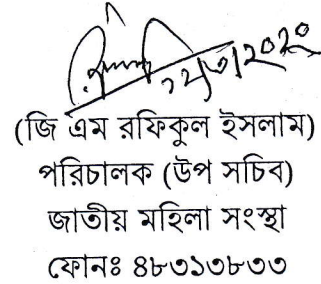 (জি এম রফিকুল ইসলাম)
পরিচালক (উপ সচিব)
জাতীয় মহিলা সংস্থা
ফোনঃ ৪৮৩১৩৮৩৩